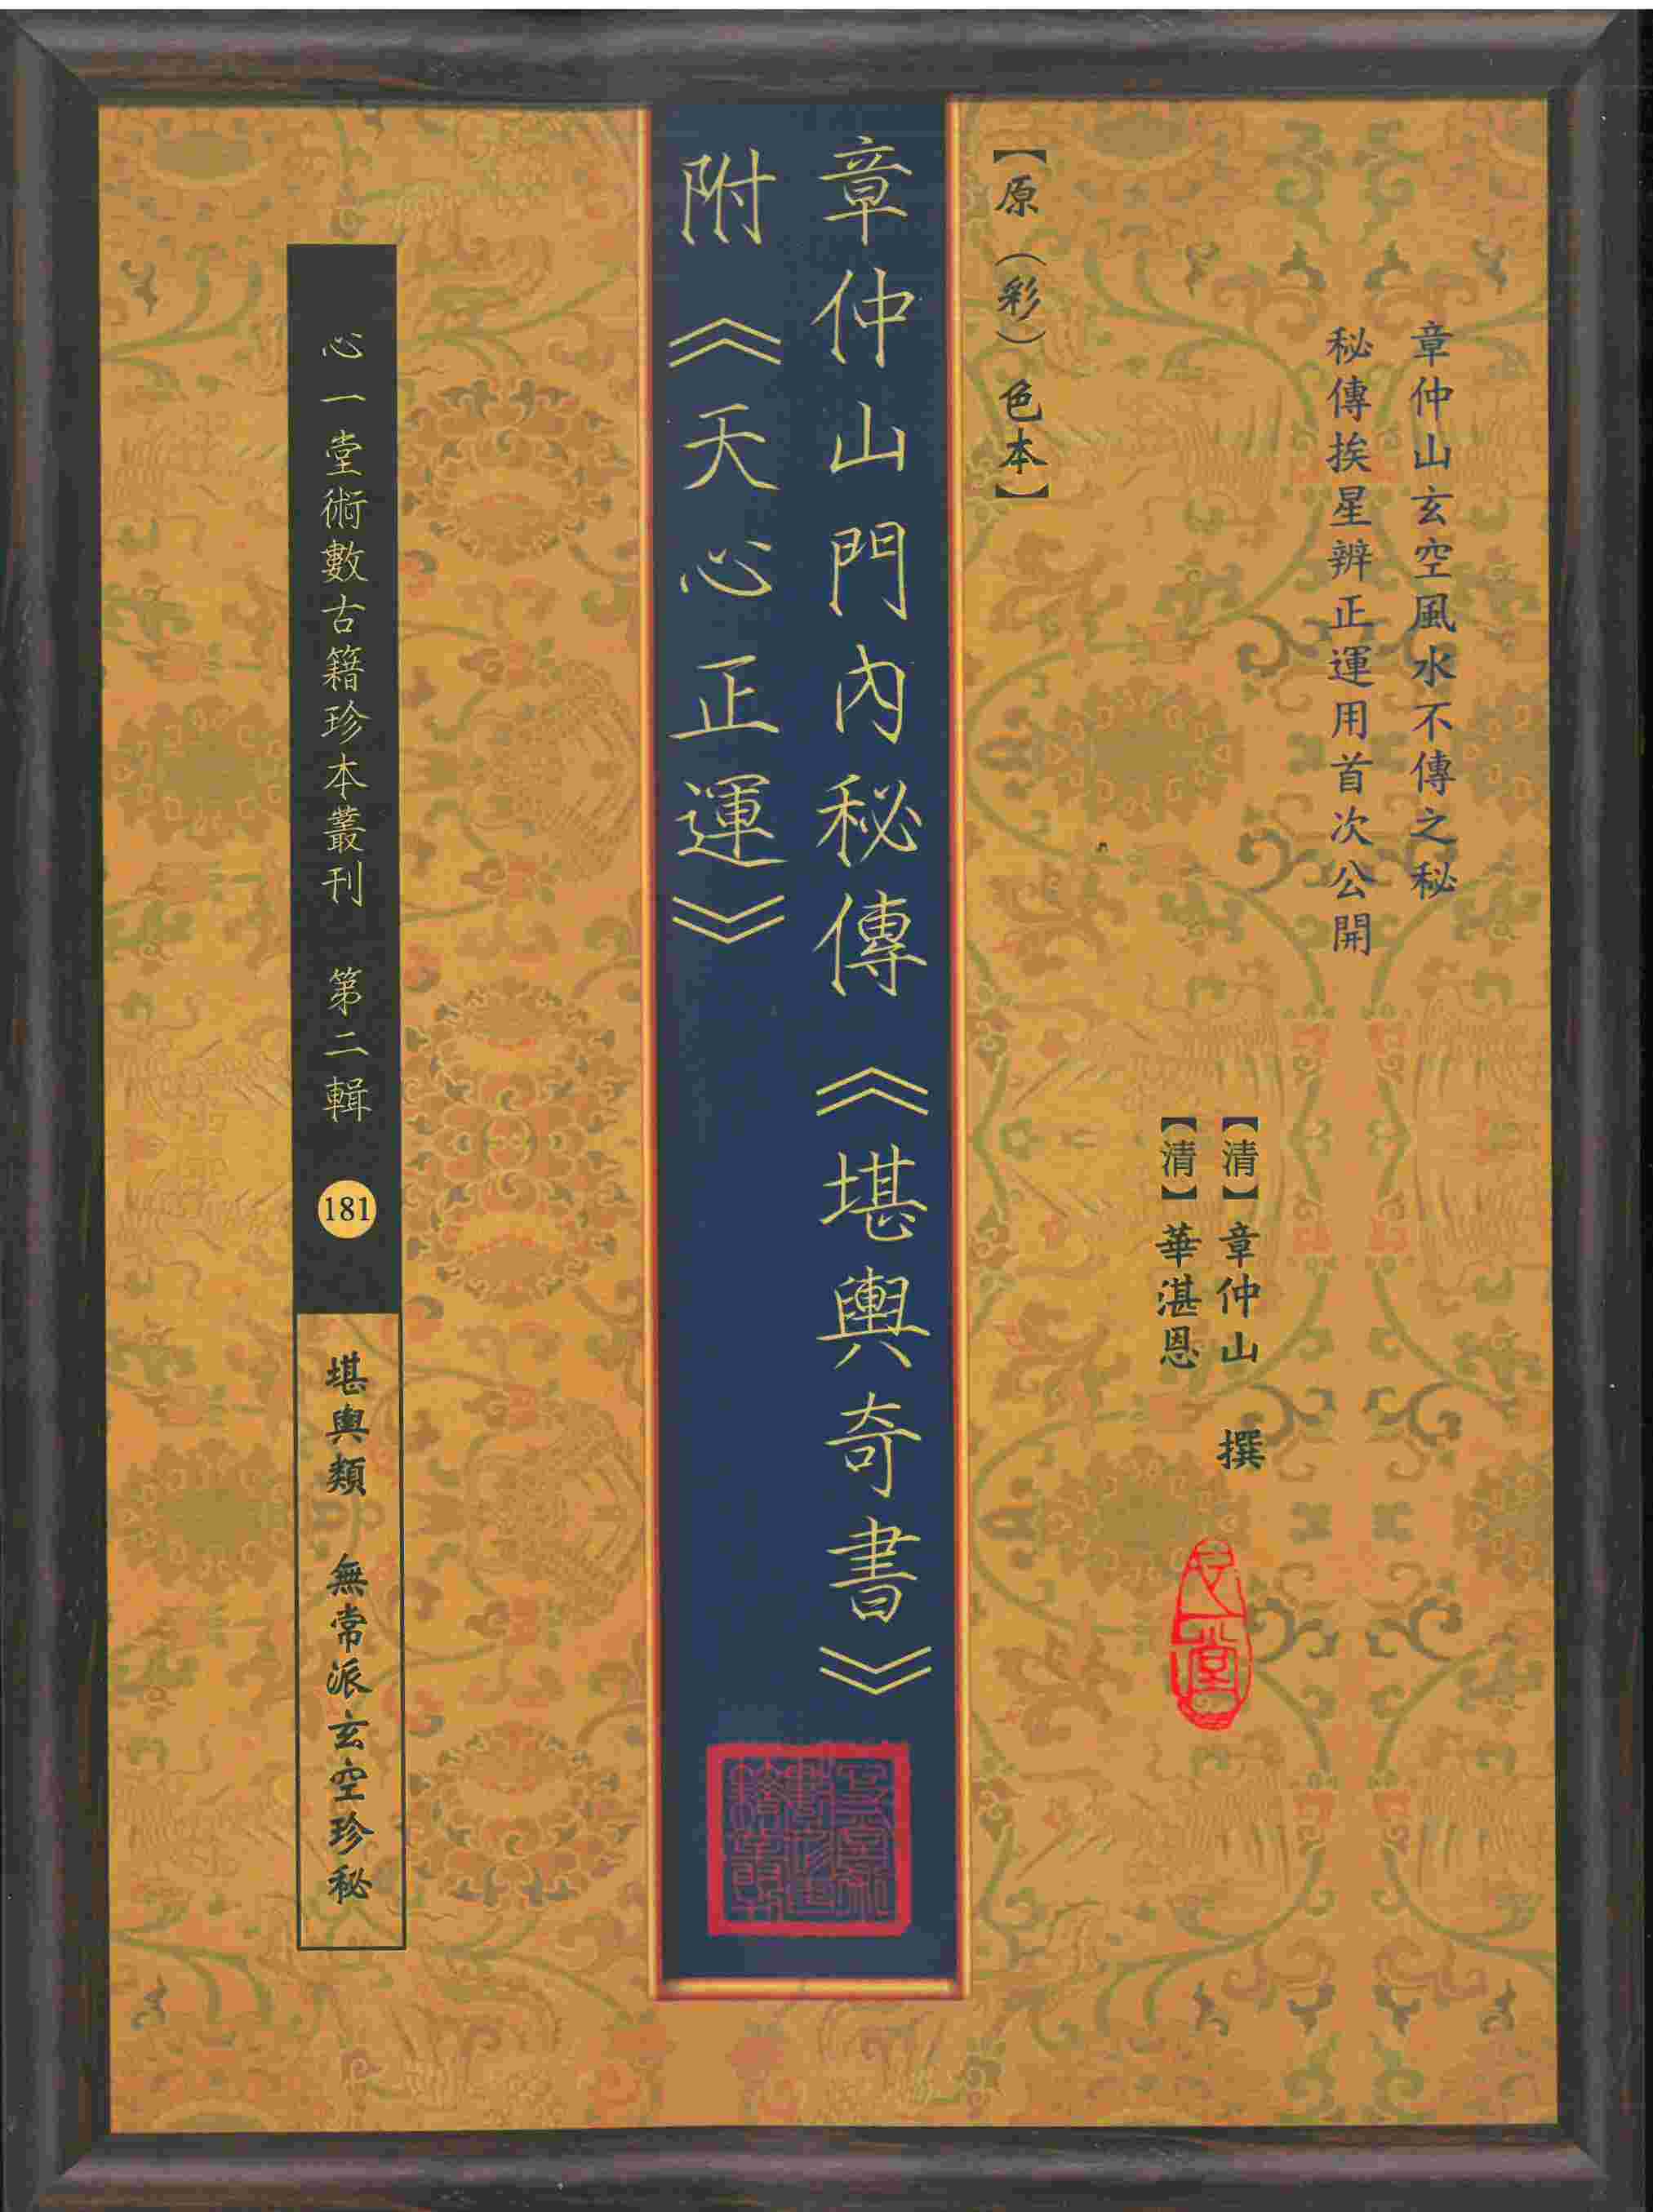 章仲山玄空風水不傳之秘
秘傳挨星辨正運用首次公開
【清】章仲山 撰
【清】華湛恩
【原（彩）色本】
章仲山門內秘傳《堪輿奇書》
附《天心正運》
心一堂術數古籍珍本叢刊 第二輯
181
堪輿類 無常派玄空珍秘